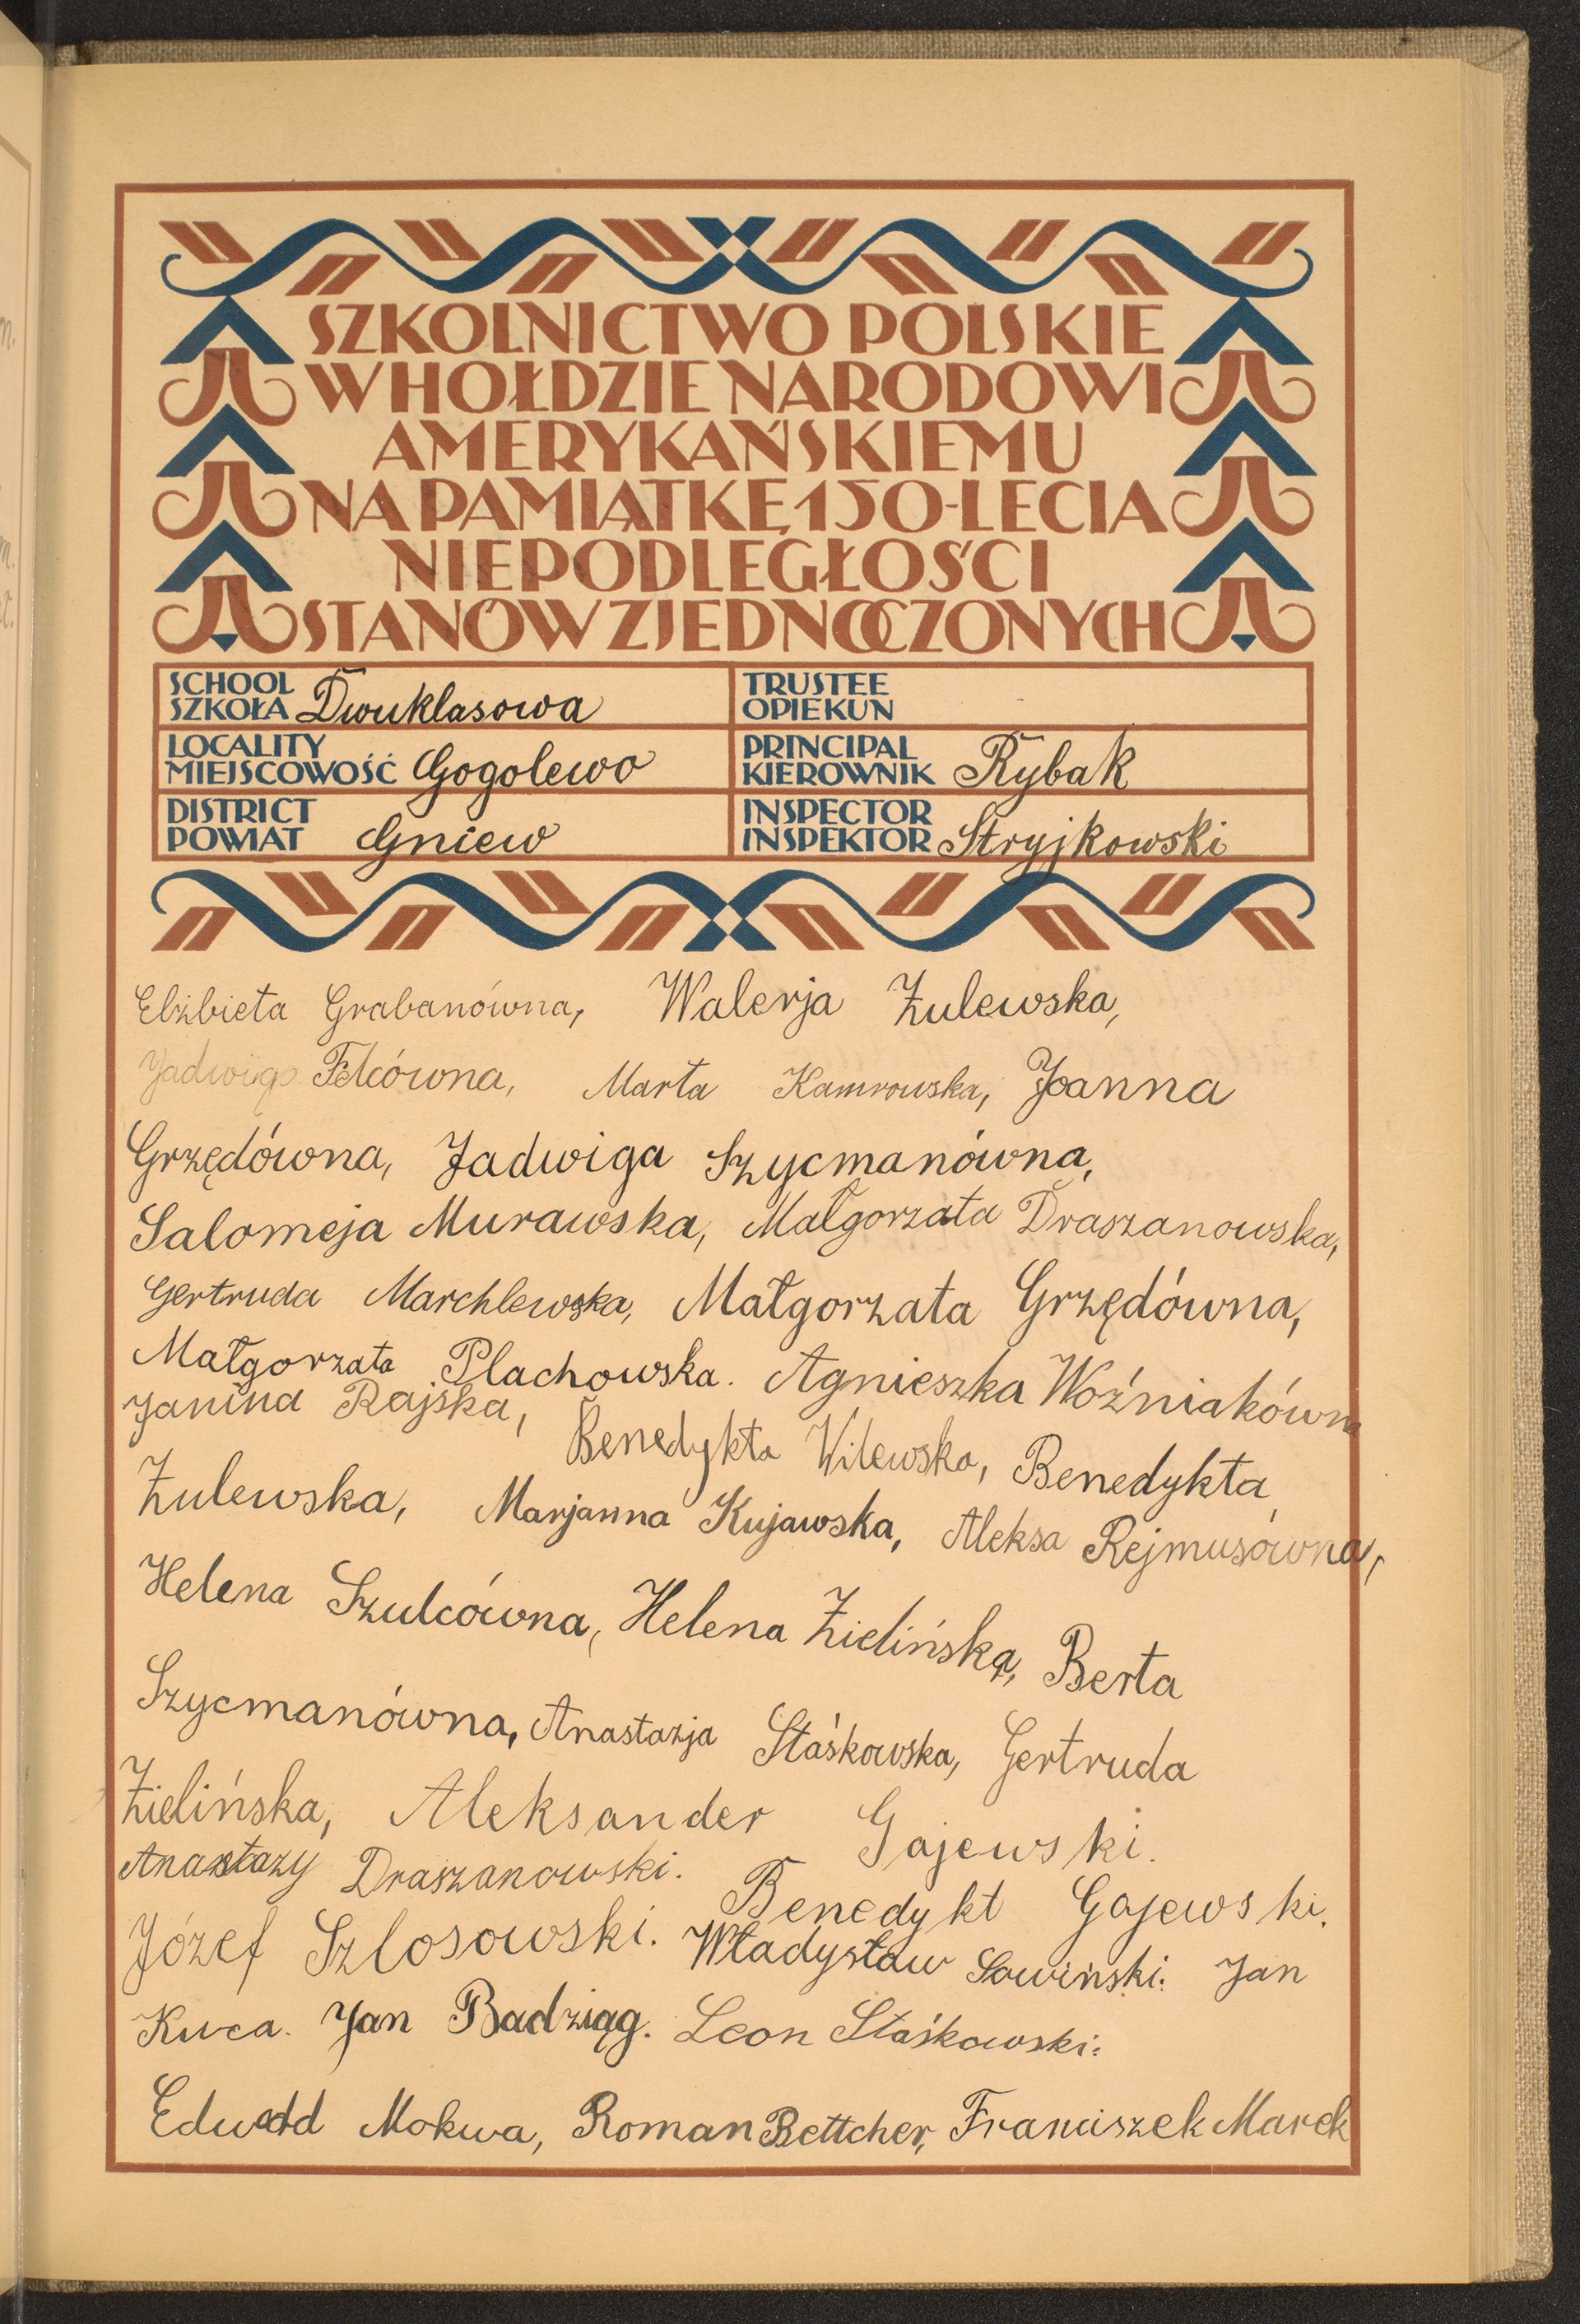 SZKOLNICTWO POLSKIE
W HOŁDZIE NARODOWI
AMERYKAŃSKIEMU
NA PAMIĄTKĘ 150-LECIA
NIEPODLEGŁOŚCI
STANÓW ZJEDNOCZONYCH
SCHOOL
SZKOŁA Dwuklasowa
TRUSTEE
OPIEKUN
LOCALITY
MIEJSCOWOŚĆ Gogolewo
PRINCIPAL
KIEROWNIK Rybak
DISTRICT
POWIAT Gniew
INSPECTOR
INSPEKTOR Stryjkowski
Elżbieta Grabanówna, Walerja Żulewska,
Jadwiga Felcówna, Marta Kamrowska, Joanna
Grzędówna, Jadwiga Szycmanówna,
Salomeja Murawska, Małgorzata Draszanowska,
Gertruda Marchlewska, Małgorzata Grzędówna,
Małgorzata Plachowska. Agnieszka Woźniakówna
Janina Rajska, Benedykta Wilewska, Benedykta
Żulewska, Marjanna Kujawska, Aleksa Rejmusówna,
Helena Szulcówna, Helena Zielińska, Berta
Szycmanówna, Anastazja Staśkowska, Gertruda
Zielińska, Aleksander Gajewski.
Anastazy Draszanowski. Benedykt Gajewski.
Józef Szlosowski. Władysław Sowiński. Jan
Kuca. Jan Badziąg. Leon Staśkowski.
Edward Mokwa, Roman Bettcher, Franciszek Marek